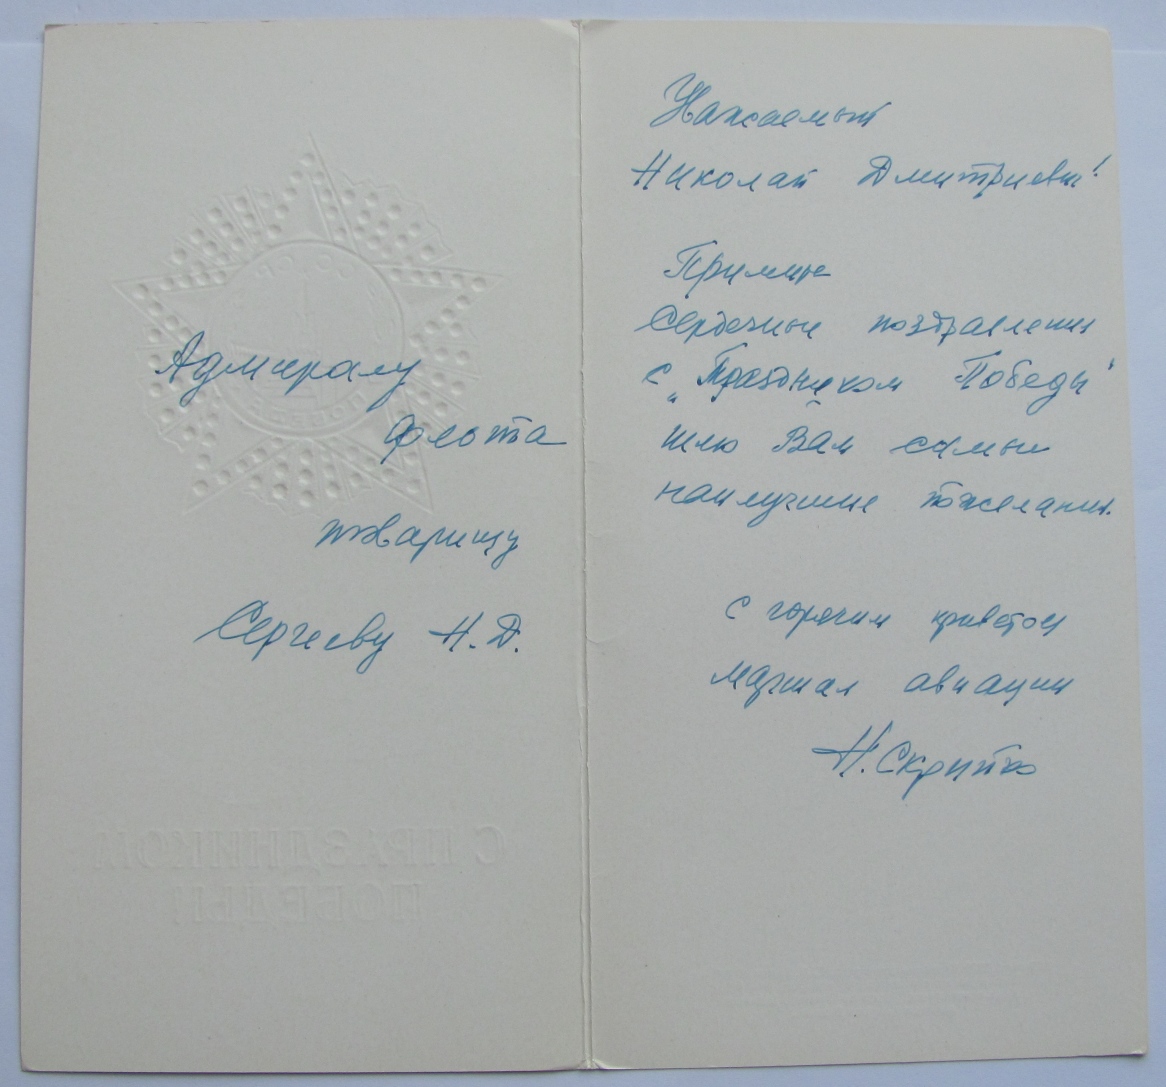 Адмиралу
флота
товарищу
Сергееву Н.Д.
С ПРАЗДНИКОМ
ПОБЕДЫ!
Уважаемый
Николай Дмитриевич!
Примите
сердечные поздравления
с „Праздником Победы"
шлю Вам самые
наилучшие пожелания.
С горячим приветом
маршал авиации
Н. Скрипко